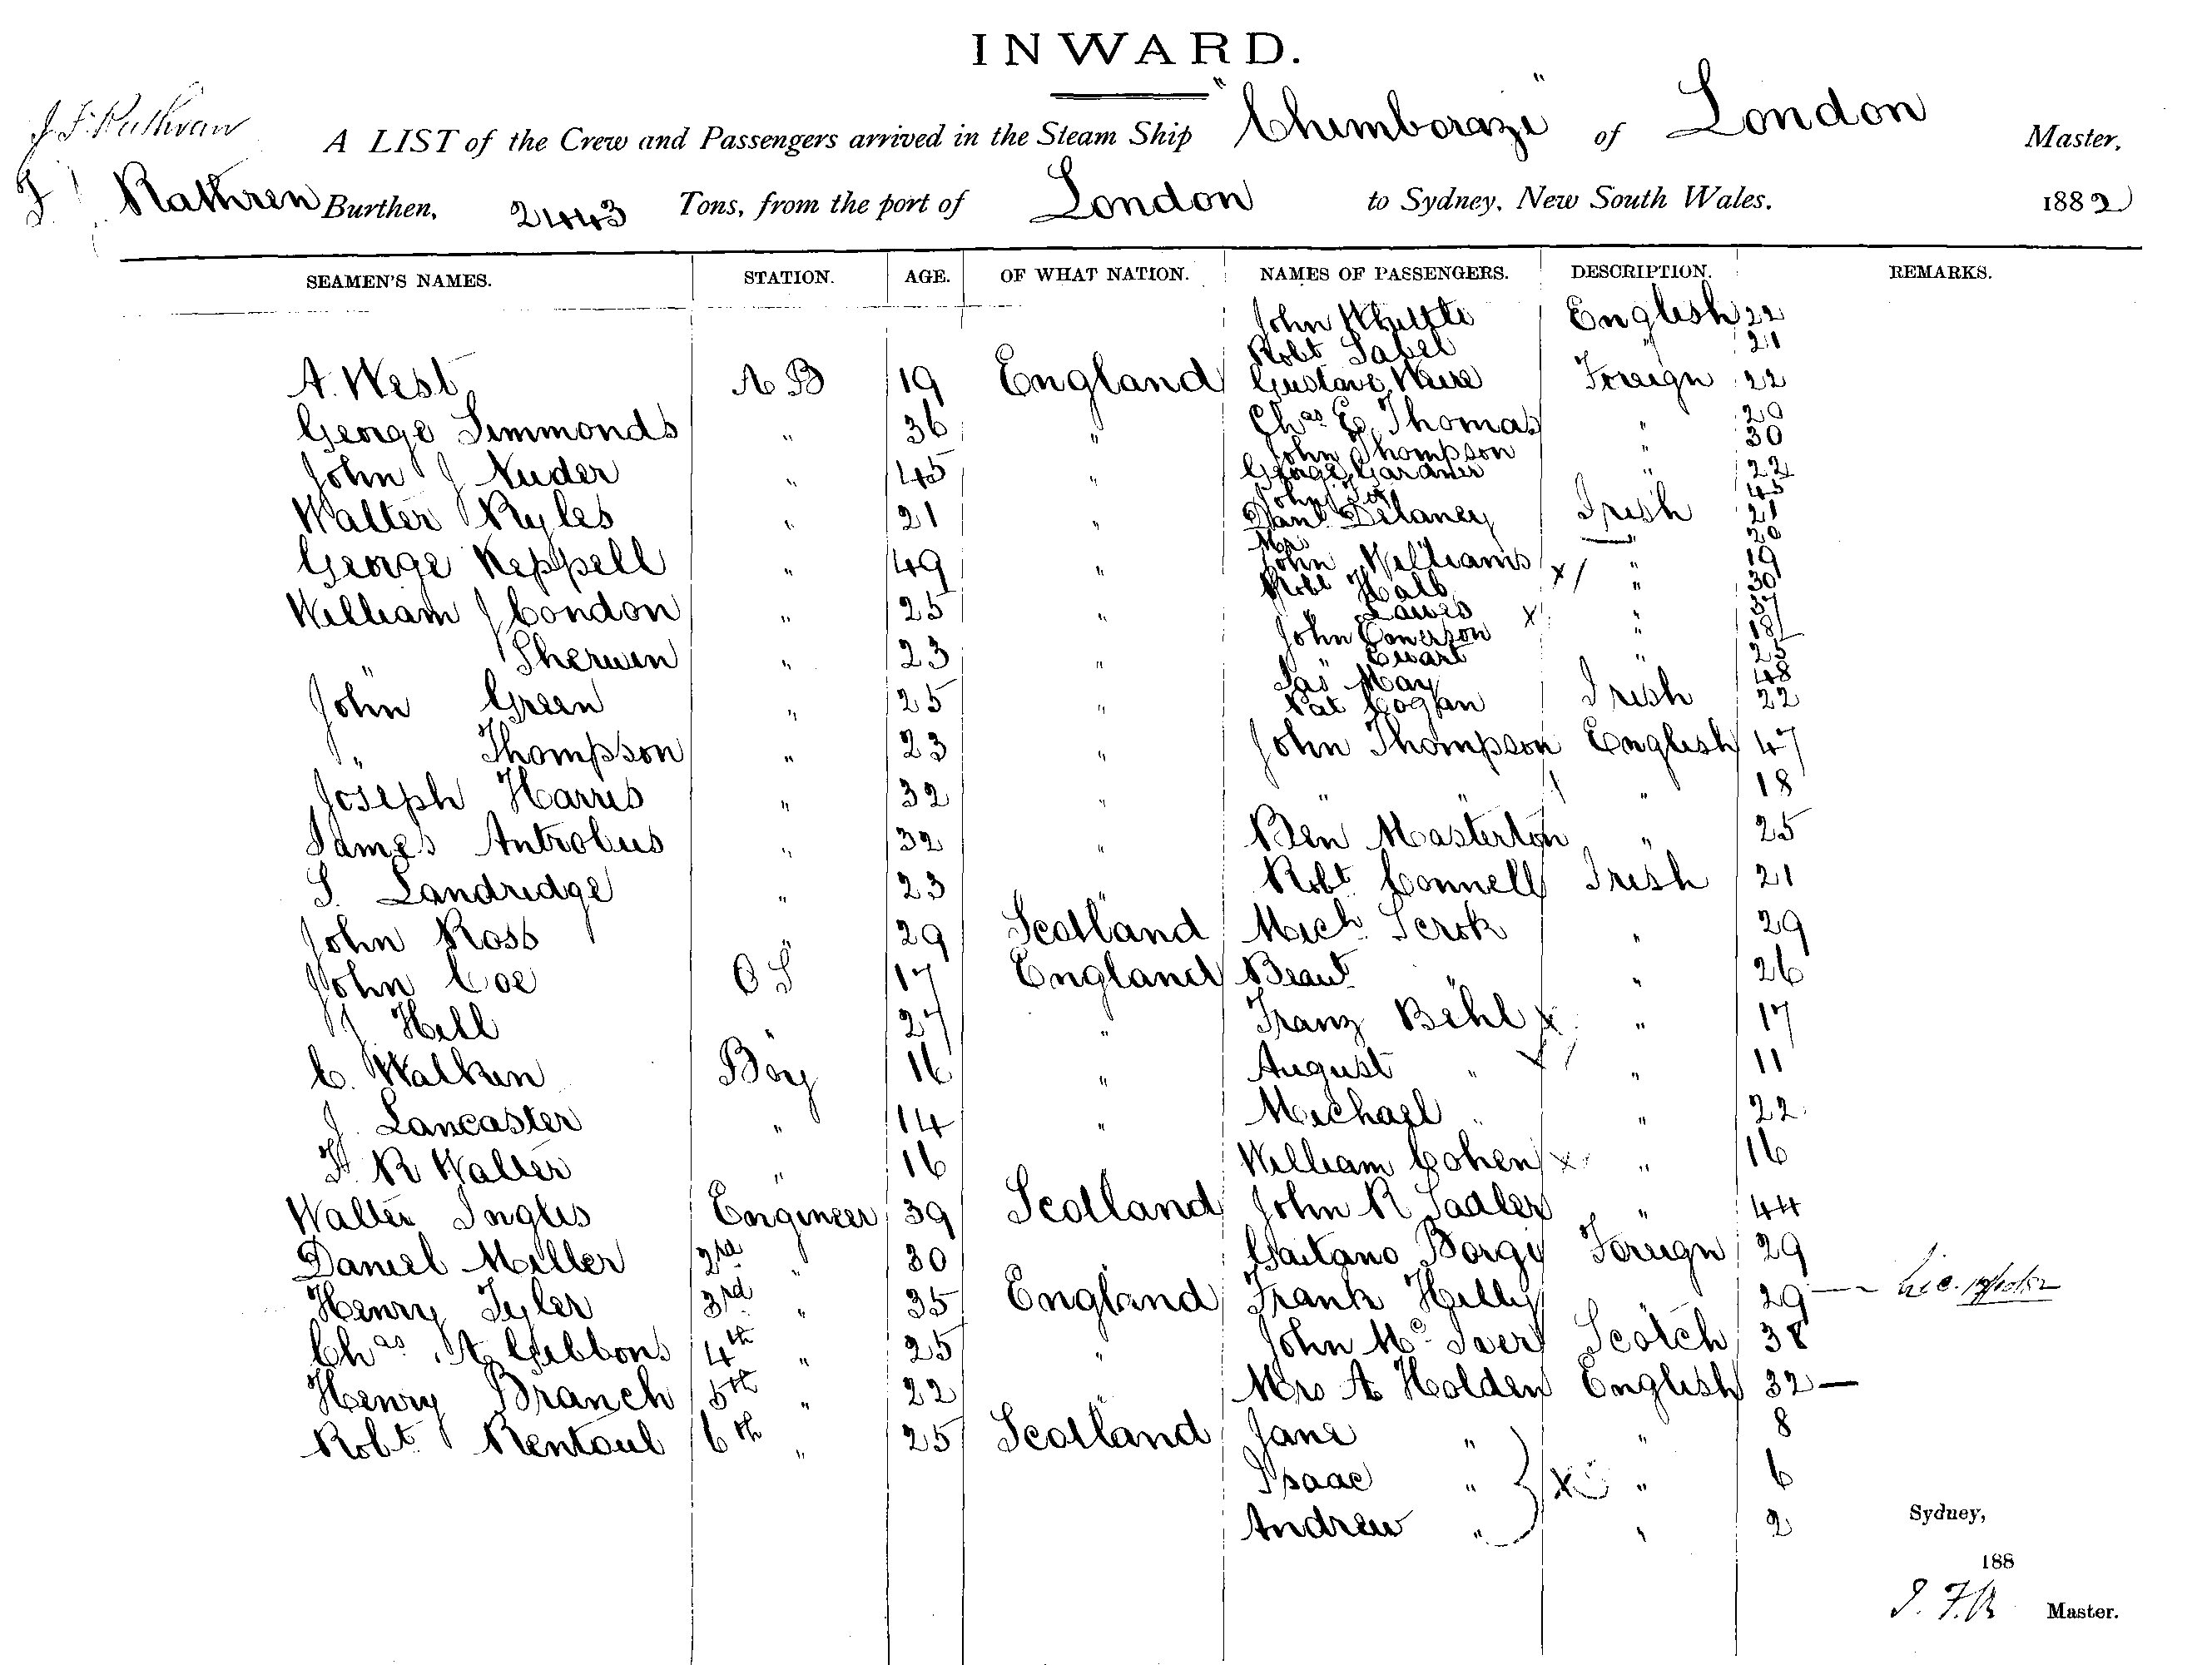 INWARD.
A LIST of the Crew and Passengers arrived in the Steam Ship "Chimborazo" of London Master,
Rathren Burthen, 2443 Tons, from the port of London to Sydney, New South Wales. 1882
SEAMEN'S NAMES. STATION. AGE. OF WHAT NATION. NAMES OF PASSENGERS. DESCRIPTION. REMARKS.
John Whittle English 22
Robt Sabel " 21
A. West A B 19 England Gustave Foreign 22
George Simmonds " 36 " Chas E Thomas " 20
John Thompson " 30
John J Nuder " 45 " George Gardner " 22
John 45
Walter Ryles " 21 " Danl Delaney Irish 21
Mrs " " 20
George Keppell " 49 " John Williams x/ " 19
Robt Hall " 30
William J Condon " 25 " " Lawes x " 37
John Emerson " 18
" Sherwin " 23 " " Ewart " 25
Jas May 48
John Green " 25 " Pat Cogan Irish 22
" Thompson " 23 " John Thompson English 47
Joseph Harris " 32 " " " " 18
James Antrobus " 32 " Ben Masterton " 25
S. Landridge " 23 " Robt Connell Irish 21
John Ross " 29 Scotland Mich " 29
John Coe O S 17 England " " 26
J Hill " 27 " Franz Behl x " 17
C. Walken Boy 16 " August " x/ " 11
J. Lancaster " 14 " Michael " " 22
F. R Walter " 16 William Cohen x " 16
Walter Inglis Engineer 39 Scotland John R Sadler " 44
Daniel Miller 2nd " 30 " Gaetano Borgi Foreign 29
Henry Tyler 3rd " 35 England Frank Hilly " 29 —
Chas. A Gibbons 4th " 25 " John Mc Iver Scotch 38
Henry Branch 5th " 22 " Mrs A Holden English 32 —
Robt Rentoul 6th " 25 Scotland Jane " " 8
Isaac " x " 6
Andrew " " 2
Sydney,
188
J. F. R Master.